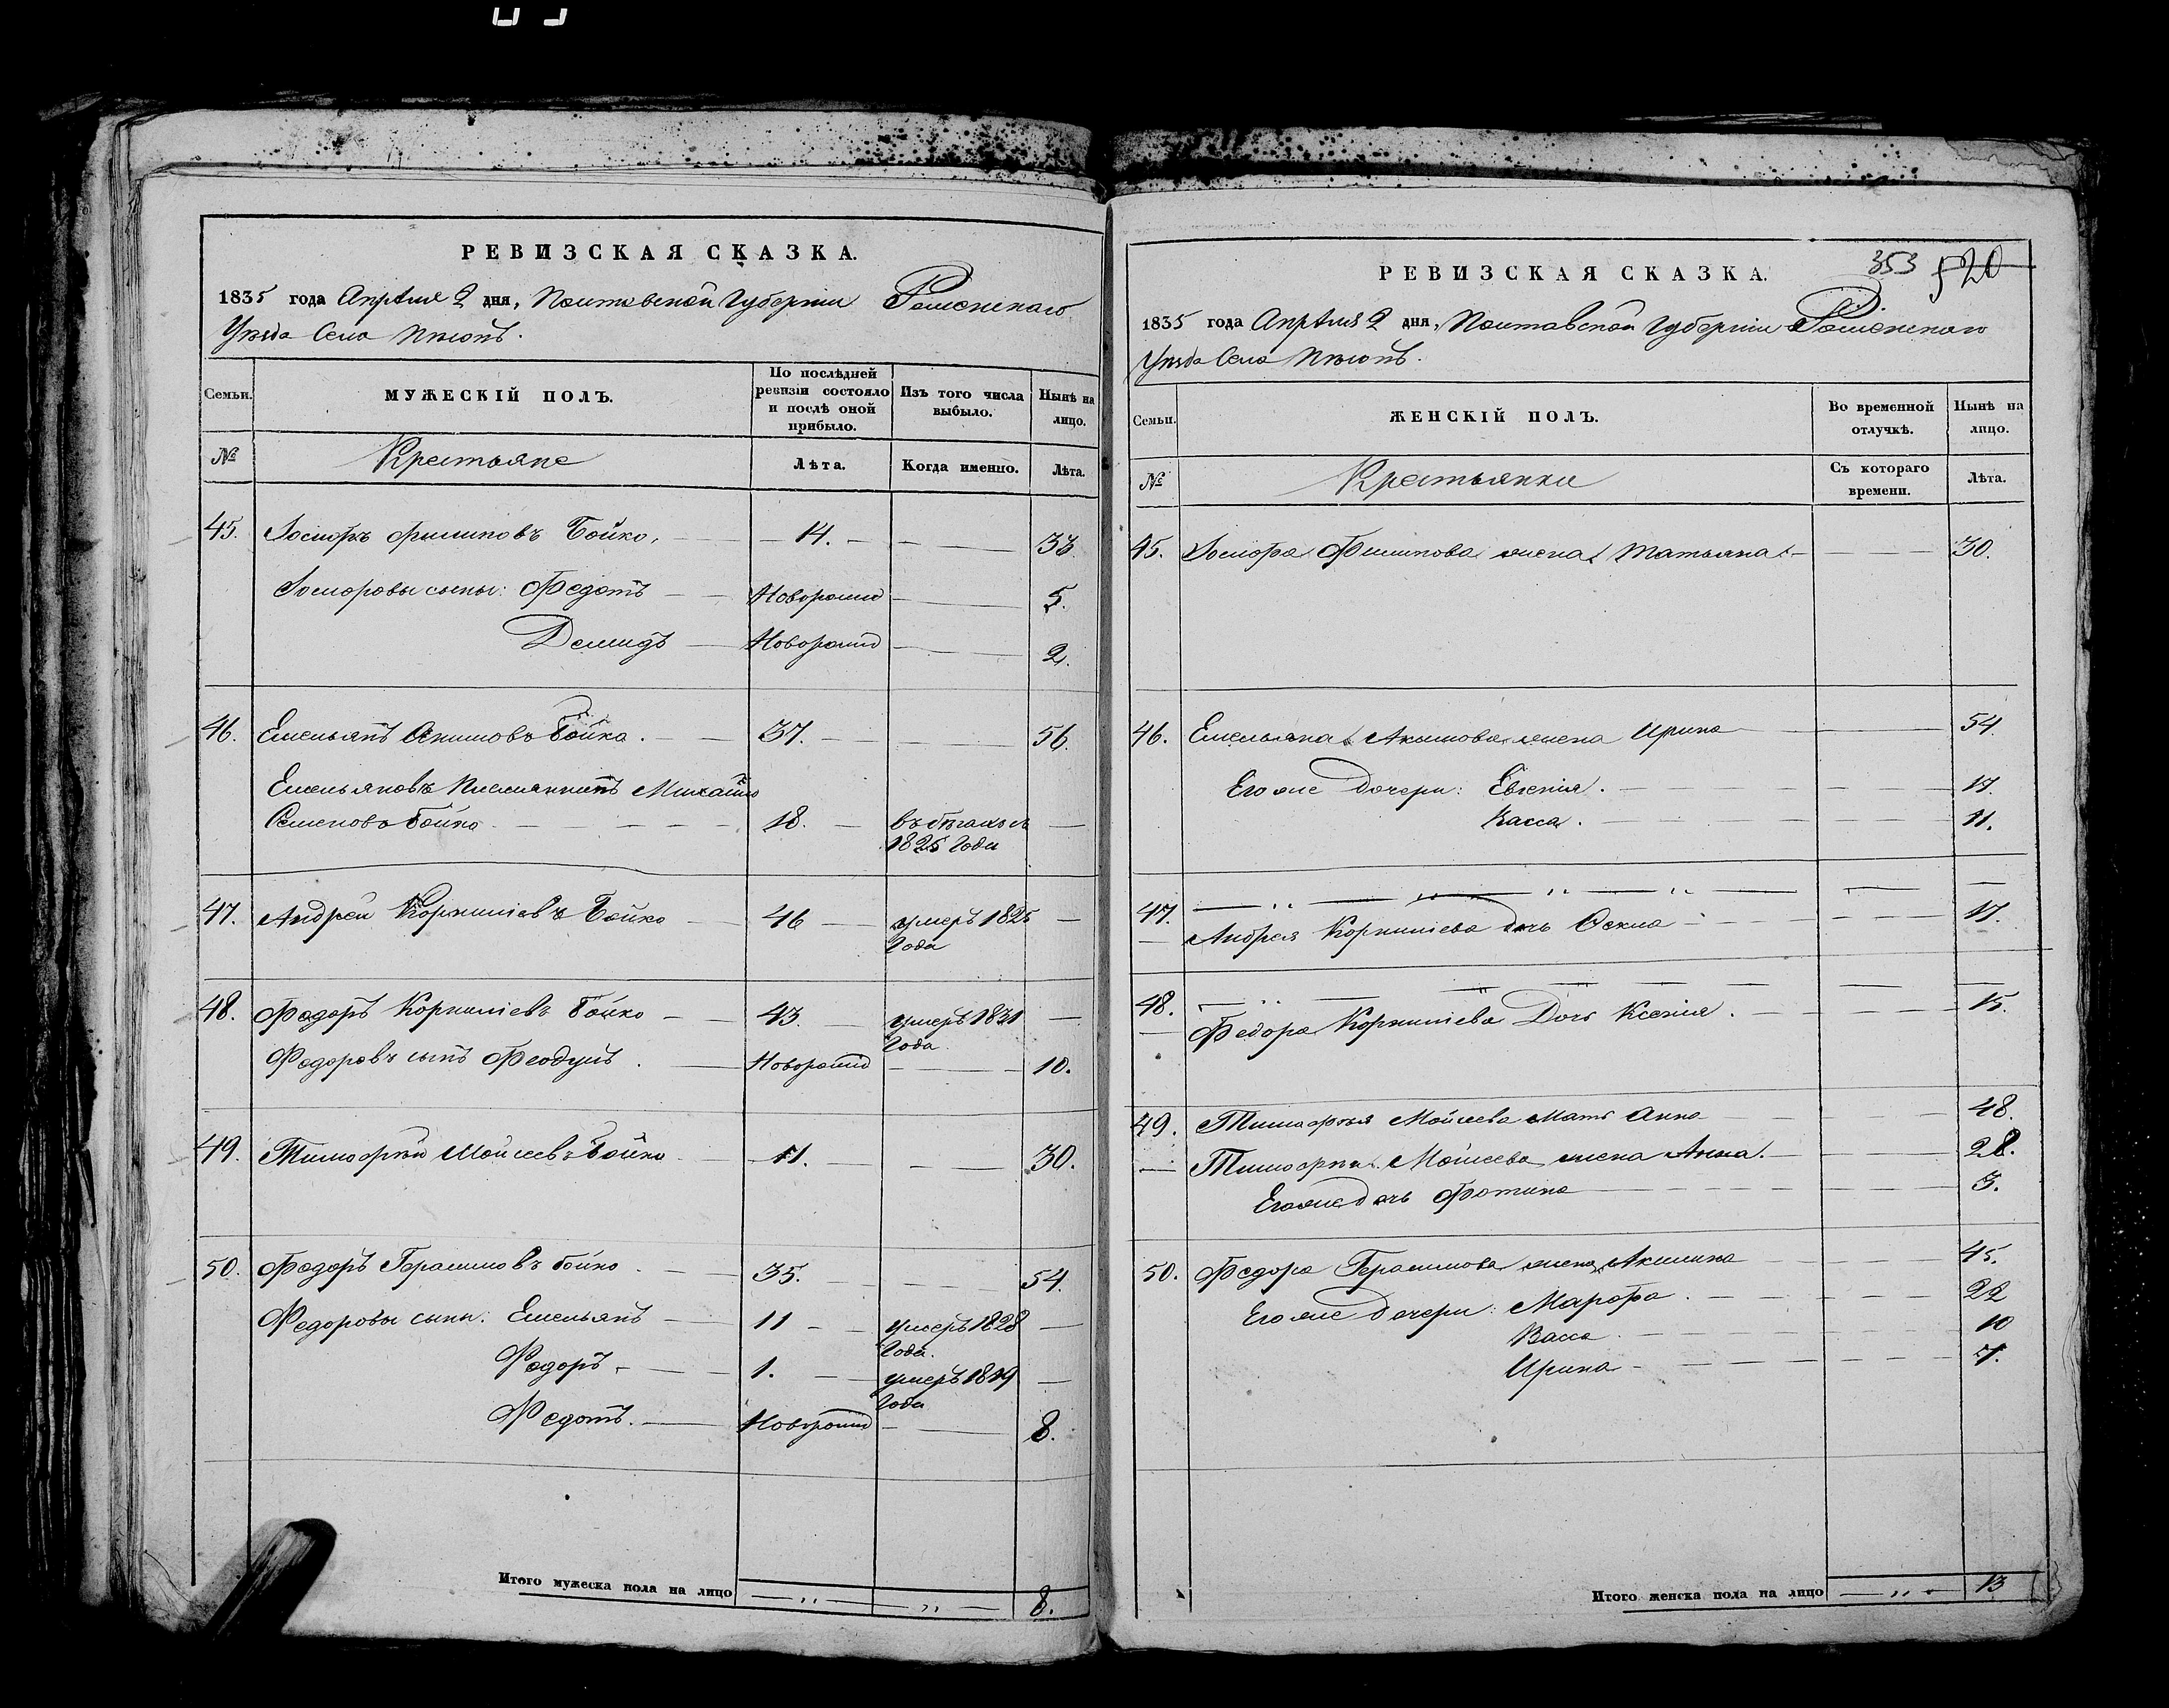 РЕВИЗСКАЯ СКАЗКА.
1835 года Апрѣля 2 дня, Полтавской Губерніи Роменскаго
Уѣзда Села
Семьи. МУЖЕСКІЙ ПОЛЪ. По послѣдней ревизіи состояло и послѣ оной прибыло. Изъ того числа выбыло. Нынѣ на лицо.
№ Крестьяне Лѣта. Когда именно. Лѣта.
45. Филиповъ Бойко, 14. 33
сыны: Федотъ Новорожд 5.
Демидъ Новорожд 2.
46. Емельянъ Акимовъ Бойко. 37. 56.
Емельяновъ племянникъ Михайло
Семеновъ Бойко 18. въ бѣгахъ съ
1825 года
47. Андрей Корниліевъ Бойко 46 умеръ 1825
года
48. Федоръ Корниліевъ Бойко 43. умеръ 1831
года
Федоровъ сынъ Феодулъ. Новорожд 10.
49. Тимофѣй Мойсеевъ Бойко 11. 30.
50. Федоръ Герасимовъ Бойко. 35. 54.
Федоровы сыны: Емельянъ 11 умеръ 1828
года.
Федоръ 1. умеръ 1819
года
Федотъ. Новорожд 8.
Итого мужеска пола на лицо 8.
353 520
РЕВИЗСКАЯ СКАЗКА.
1835 года Апрѣля 2 дня, Полтавской Губерніи Роменскаго
Уѣзда Села
Семьи. ЖЕНСКІЙ ПОЛЪ. Во временной отлучкѣ. Нынѣ на лицо.
№ Крестьянки Съ котораго времени. Лѣта.
45. Филипова жена Татьяна 30.
46. Емельяна Акимова жена Ирина 54.
Его же дочери: Евгенія. 17.
Васса. 11.
47.
Андрея Корниліева дочь 17.
48.
Федора Корниліева Дочь Ксенія. 15.
49. Тимофѣя Мойсеева Мать Анна 48.
Тимофѣя Мойсеева жена Анна. 28.
Его же дочь Фотина 3.
50. Федора Герасимова жена Акилина 45.
Его же дочери: Марфа. 22
Васса. 10
Ирина 7.
Итого женска пола на лицо 13